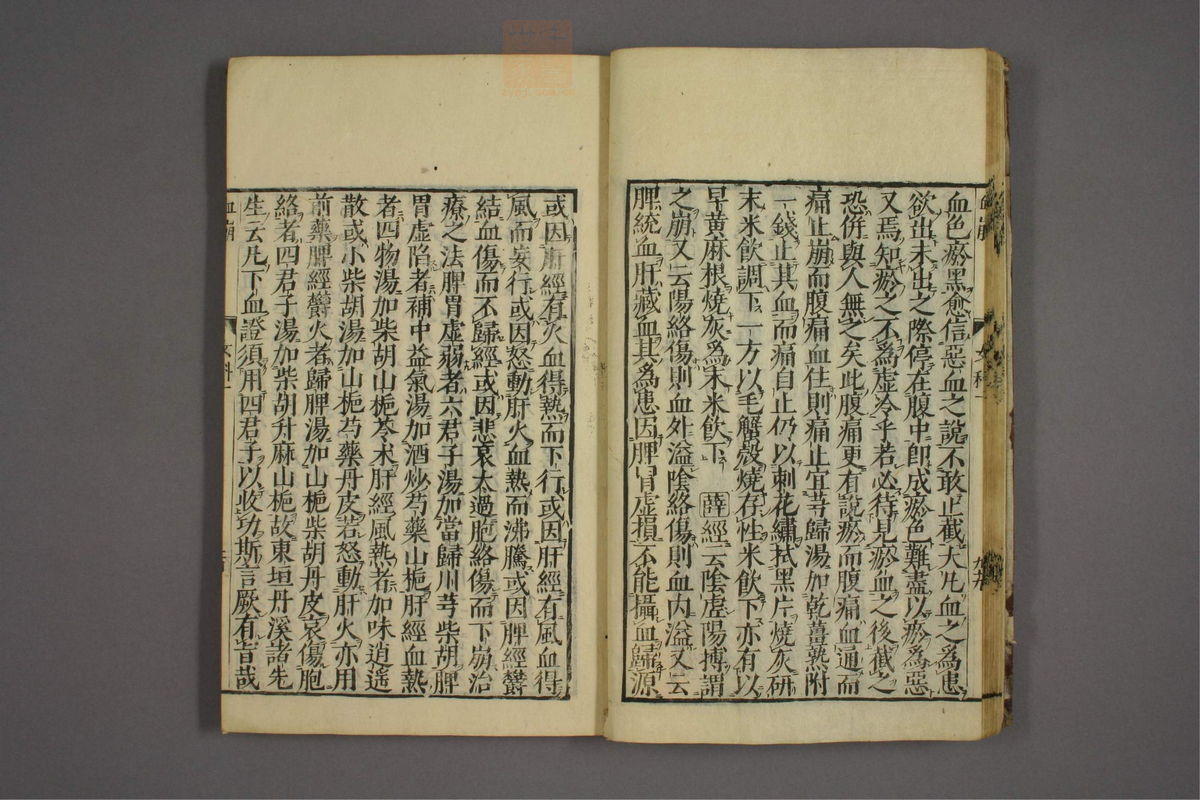 血色瘀黑愈信惡血之說不敢止截大凡血之爲患
欲出未出之際停在腹中即成瘀色難盡以瘀爲惡
又焉知瘀之不爲虛冷乎若必待見瘀血之後截之
恐併與人無之矣此腹痛更有說瘀而腹痛血通而
痛止崩而腹痛血住則痛止宜芎歸湯加乾薑熟附
一錢止其血而痛自止仍以刺花繡拭黑片燒灰研
末米飲調下一方以毛蟹殼燒存性米飲下亦有以
旱黄麻根燒灰爲末米飲下 薛經云陰虛陽搏謂
之崩又云陽絡傷則血外溢陰絡傷則血内溢又云
脾統血肝藏血其爲患因脾胃虛損不能攝血歸源
或因肝經有火血得熱而下行或因肝經有風血得
風而妄行或因怒動肝火血熱而沸騰或因脾經鬱
結血傷而不歸經或因悲哀太過胞絡傷而下崩治
療之法脾胃虛弱者六君子湯加當歸川芎柴胡脾
胃虛陷者補中益氣湯加酒炒芍藥山梔肝經血熱
者四物湯加柴胡山梔苓朮肝經風熱者加味逍遙
散或小柴胡湯加山梔芍藥丹皮若怒動肝火亦用
前藥脾經鬱火者歸脾湯加山梔柴胡丹皮哀傷胞
絡者四君子湯加柴胡升麻山梔故東垣丹溪諸先
生云凡下血證須用四君子以收功斯言厥有旨哉
血崩
女科一